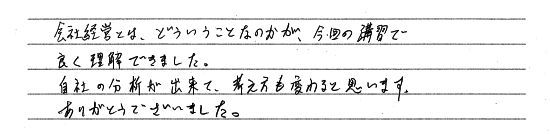 会社経営とは、どういうことなのかが、今回の講習で
良く理解できました。
自社の分析が出来て、考え方も変わると思います。
ありがとうございました。